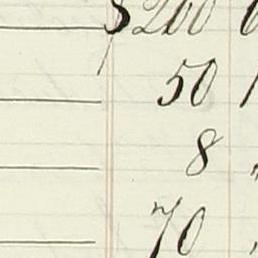 $200
50
8
70